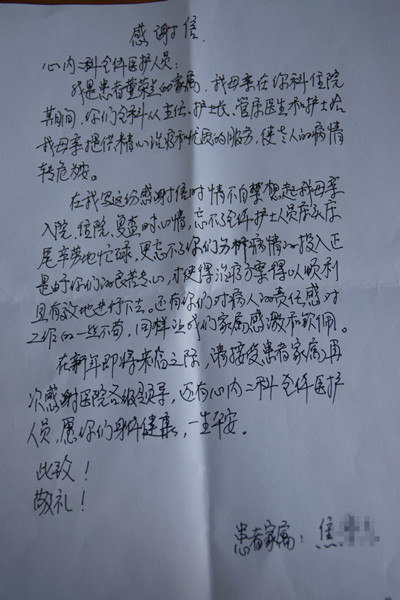 感谢信
心内二科全体医护人员:
我是患者董荣兰的家属,我母亲在你科住院
其间,你们全科从主任、护士长、管床医生和护士给
我母亲提供精心治疗和优质的服务,使老人的病情
转危为安。
在我写这份感谢信时情不自禁想起我母亲
入院、住院、复查时心情,忘不了全体护士人员床头床
尾辛劳地忙碌,更忘不了你们分析病情的投入正
是由你们的良苦用心,才使得治疗方案得以顺利
且有效地进行下去。还有你们对病人的责任感对
工作的一丝不苟,同样让我们家属感激和钦佩。
在新年即将来临之际,请接受患者家属再
次感谢医院各级领导,还有心内二科全体医护
人员,愿你们身体健康,一生平安。
此致!
敬礼!
患者家属:焦